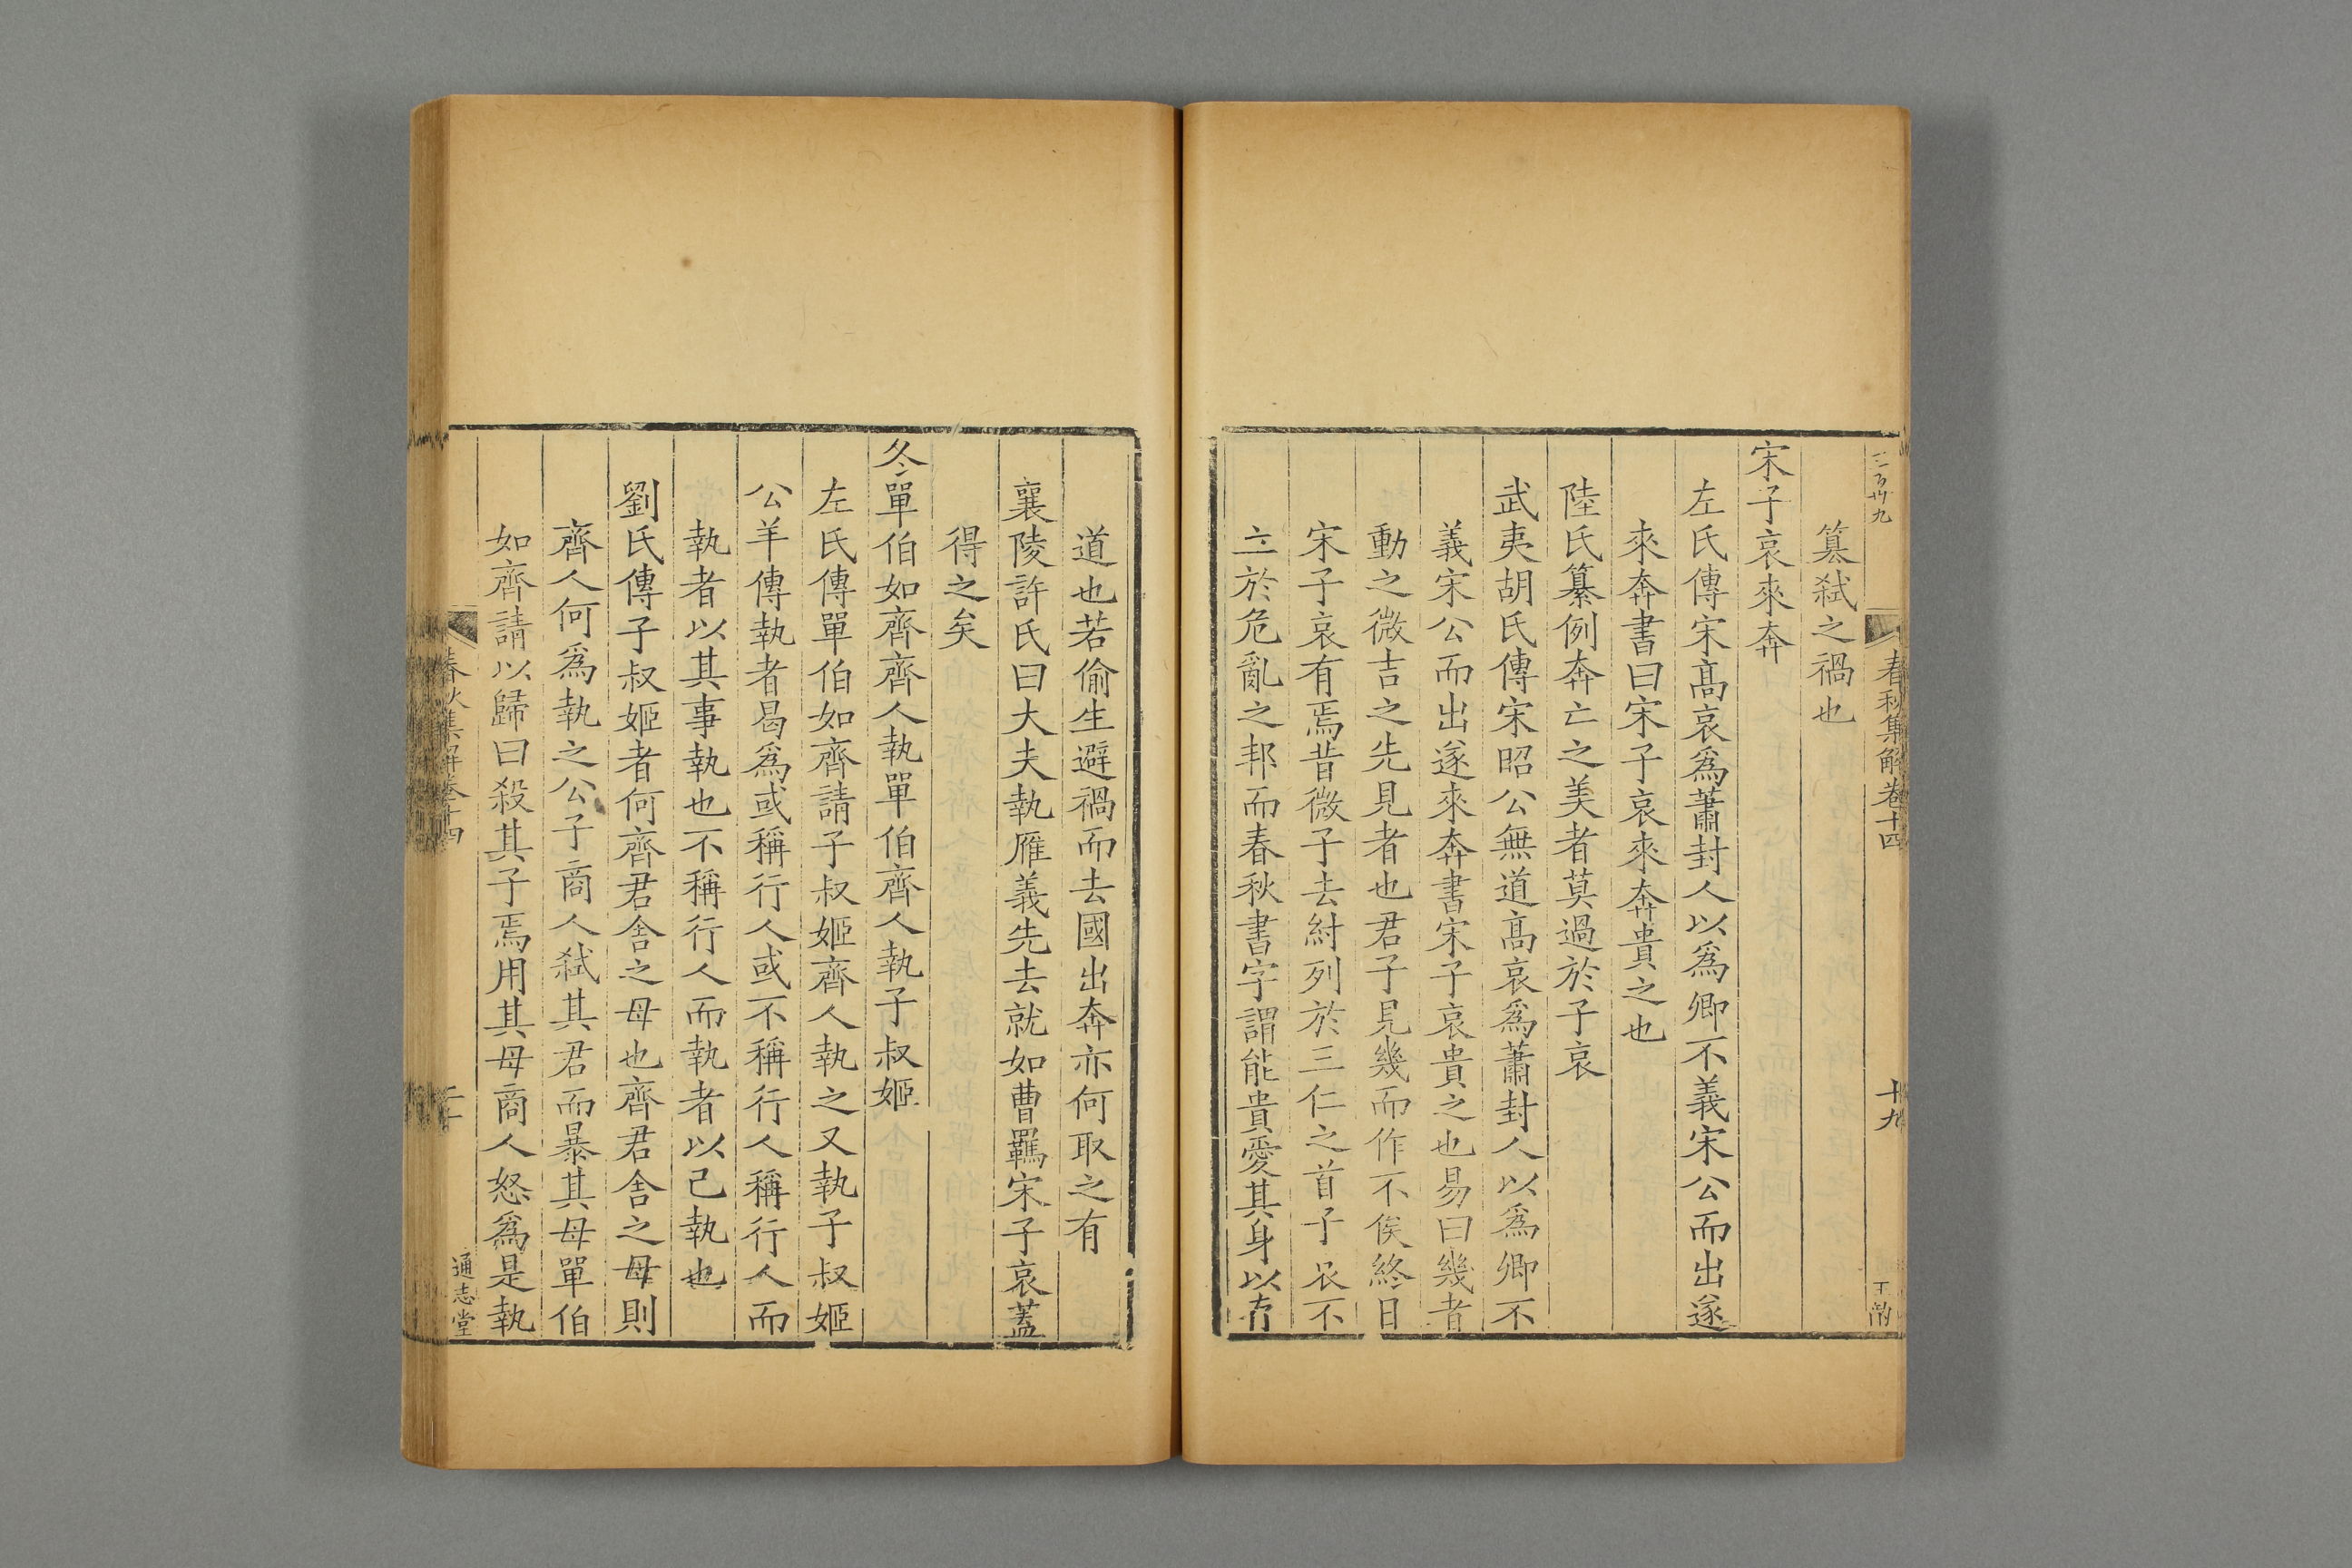 三百卅九
春秋集解卷十四
十九
篡弑之禍也
宋子哀來奔
左氏傳宋高哀爲蕭封人以爲卿不義宋公而出遂
來奔書曰宋子哀來奔貴之也
陸氏纂例奔亡之美者莫過於子哀
武夷胡氏傳宋昭公無道高哀爲蕭封人以爲卿不
義宋公而出遂來奔書宋子哀貴之也易曰幾者
動之微吉之先見者也君子見幾而作不俟終日
宋子哀有焉昔微子去紂列於三仁之首子哀不
立於危亂之邦而春秋書字謂能貴愛其身以存
道也若偷生避禍而去國出奔亦何取之有
襄陵許氏曰大夫執雁義先去就如曹羈宋子哀蓋
得之矣
冬單伯如齊齊人執單伯齊人執子叔姬
左氏傳單伯如齊請子叔姬齊人執之又執子叔姬
公羊傳執者曷爲或稱行人或不稱行人稱行人而
執者以其事執也不稱行人而執者以己執也
劉氏傳子叔姬者何齊君舍之母也齊君舍之母則
齊人何爲執之公子商人弑其君而暴其母單伯
如齊請以歸曰殺其子焉用其母商人怒爲是執
春秋集解卷十四
通志堂